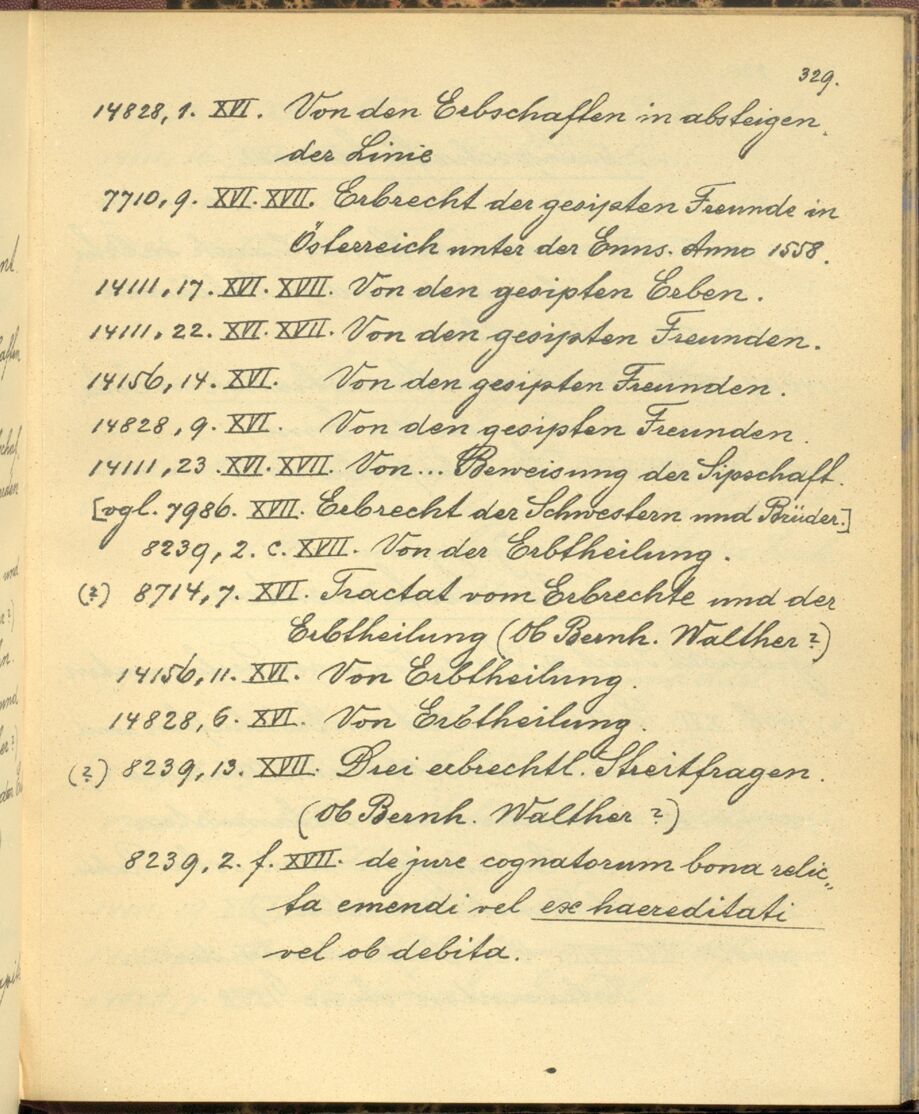 329.
14828, 1. XVI. Von den Erbschaften in absteigen-
der Linie
7710, 9. XVI. XVII. Erbrecht der gesipten Freunde in
Österreich unter der Enns. Anno 1558.
14111, 17. XVI. XVII. Von den gesipten Erben.
14111, 22. XVI. XVII. Von den gesipten Freunden.
14156, 14. XVI. Von den gesipten Freunden.
14828, 9. XVI. Von den gesipten Freunden.
14111, 23. XVI. XVII. Von... Beweisung der Sipschaft.
[vgl. 7986. XVII. Erbrecht der Schwestern und Brüder.]
8239, 2. c. XVII. Von der Erbtheilung.
(?) 8714, 7. XVI. Tractat vom Erbrechte und der
Erbtheilung (Ob Bernh. Walther?)
14156, 11. XVI. Von Erbtheilung.
14828, 6. XVI. Von Erbtheilung.
(?) 8239, 13. XVII. Drei erbrechtl. Streitfragen.
(Ob Bernh. Walther?)
8239, 2. f. XVII. de jure cognatorum bona relic-
ta emendi vel ex haereditati
vel ob debita.